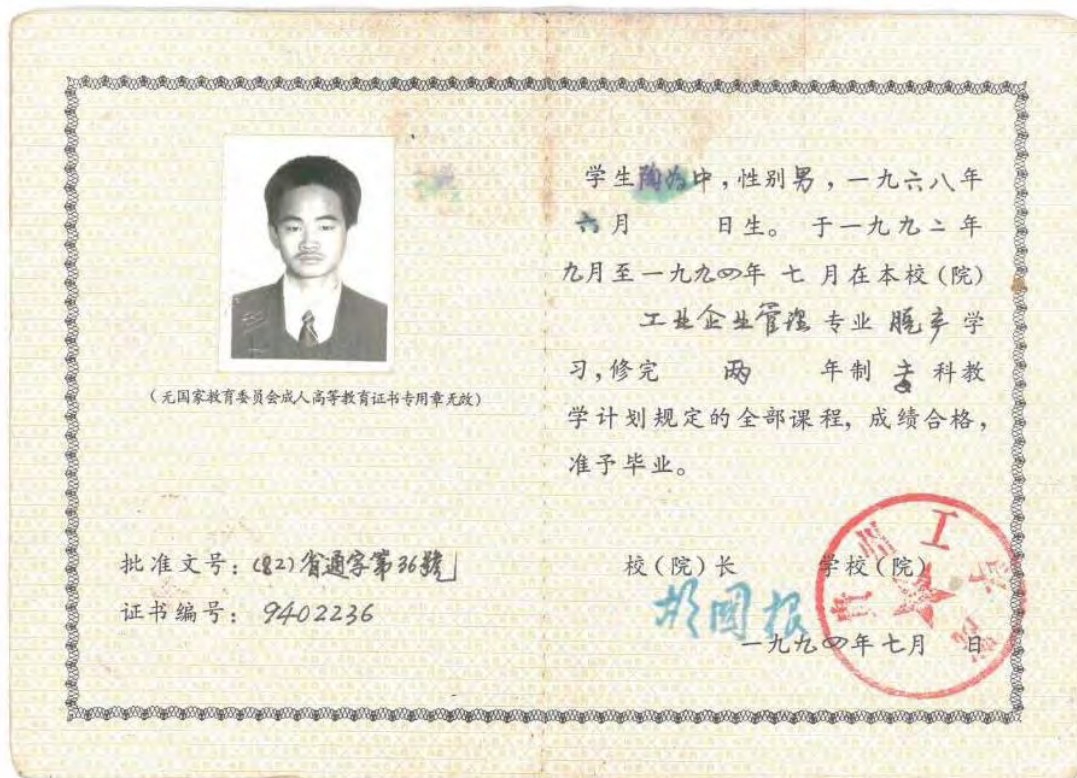 (无国家教育委员会成人高等教育证书专用章无效)
批准文号：(82)省通字第36號
证书编号：9402236
学生陶治中，性别男，一九六八年
六月 日生。于一九九二年
九月至一九九四年 七 月在本校(院)
工业企业管理 专业 脱产 学
习，修完 两 年制 专 科教
学计划规定的全部课程，成绩合格，
准予毕业。
校(院)长 学校(院)
一九九四年七月 日
工学院